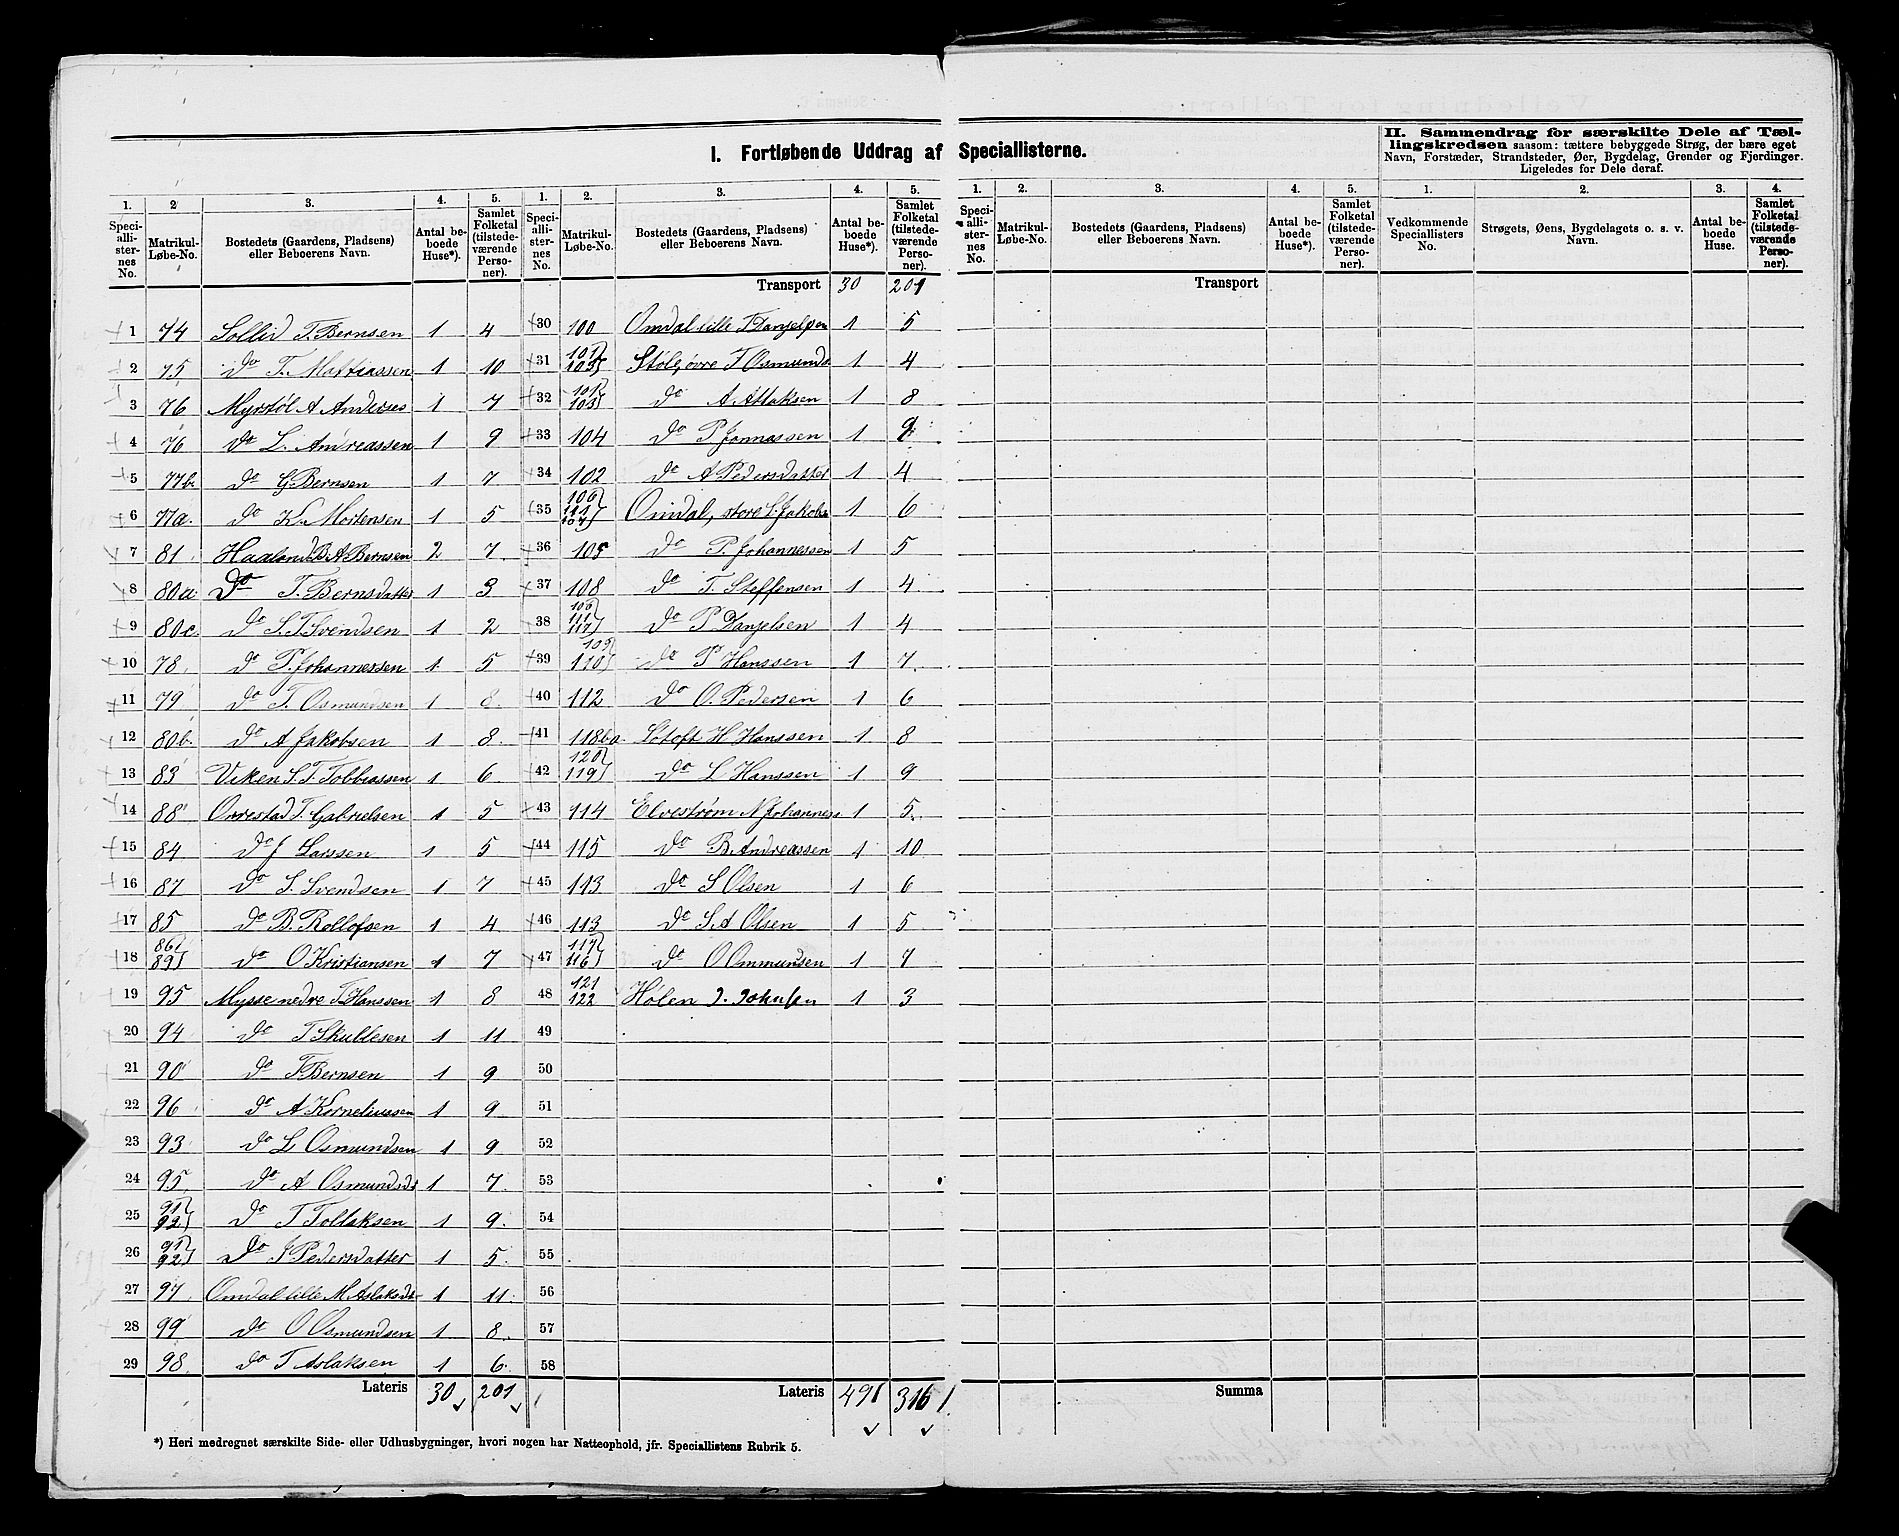 I. Fortløbende Uddrag af Speciallisterne.
II. Sammendrag for særskilte Dele af Tæl-
lingskredsen saasom: tættere bebyggede Strøg, der bære eget
Navn, Forstæder, Strandsteder, Øer, Bygdelag, Grender og Fjerdinger.
Ligeledes for Dele deraf.
1. Speciallisternes No. 2. Matrikul-Løbe-No. 3. Bostedets (Gaardens, Pladsens) eller Beboerens Navn. 4. Antal beboede Huse*). 5. Samlet Folketal (tilstedeværende Personer).
1 74 Sollid T. Bernsen 1 4
2 75 do T. Mattiassen 1 10
3 76 Myrstøl A Anderses 1 7
4 76 do L. Andreassen 1 9
5 77b. do G Bernsen 1 7
6 77a. do K. Mortensen 1 5
7 81 Haaland B. A. Bernsen 2 7
8 80a do T. Bernsdatter 1 3
9 80c. do S. T. Svendsen 1 2
10 78 do P. Johannessen 1 5
11 79 do T. Osmundsen 1 8
12 80b. do A Jakobsen 1 8
13 83 Viken S. T. Tobbiassen 1 6
14 88 Orrestad T. Gabrielsen 1 5
15 84 do J Larssen 1 5
16 87 do S. Svendsen 1 7
17 85 do B. Rollofsen 1 4
18 86 89 do O Kristiansen 1 7
19 95 Mysse nedre T. Hanssen 1 8
20 94 do T Skullesen 1 11
21 90 do T. Bernsen 1 9
22 96 do A Korneliussen 1 9
23 93 do L Osmundsen 1 9
24 95 do A Osmundsds 1 7
25 91 92 do T Tollaksen 1 9
26 91 92 do J Pedersdatter 1 5
27 97 Omdal lille M Aslaksdt 1 11
28 99 do O Osmundsen 1 8
29 98 do T Aslaksen 1 6
Lateris 30 201
1. Speciallisternes No. 2. Matrikul-Løbe-No. 3. Bostedets (Gaardens, Pladsens) eller Beboerens Navn. 4. Antal beboede Huse*). 5. Samlet Folketal (tilstedeværende Personer).
Transport 30 201
30 100 Omdal lille T Danjelsen 1 5
31 101 103 Støle, øvre T Osmunds 1 4
32 101 103 do A Atlaksen 1 8
33 104 do P Jonnassen 1 9
34 102 do A Pedersdatter 1 4
35 106 111 107 Omdal, store S. Jakobs 1 6
36 105 do P. Johannessen 1 5
37 108 do T. Steffensen 1 4
38 106 111 117 do P Danjelsen 1 4
39 109 110 do P Hanssen 1 7
40 112 do O. Pedersen 1 6
41 118ba Lotoft H Hanssen 1 8
42 120 119 do L Hanssen 1 9
43 114 Elvestrøm N Johanness 1 5
44 115 do B. Andreassen 1 10
45 113 do S Olsen 1 6
46 113 do S. A Olsen 1 5
47 117 116 do O Ommundsen 1 7
48 121 122 Hølen J. Johnsen 1 3
49
50
51
52
53
54
55
56
57
58
Lateris 49 316
1. Speciallisternes No. 2. Matrikul-Løbe-No. 3. Bostedets (Gaardens, Pladsens) eller Beboerens Navn. 4. Antal beboede Huse*). 5. Samlet Folketal (tilstedeværende Personer).
Transport
Summa
1. Vedkommende Speciallisters No. 2. Strøgets, Øens, Bygdelagets o. s. v. Navn. 3. Antal beboede Huse. 4. Samlet Folketal (tilstedeværende Personer).
*) Heri medregnet særskilte Side- eller Udhusbygninger, hvori nogen har Natteophold, jfr. Speciallistens Rubrik 5.